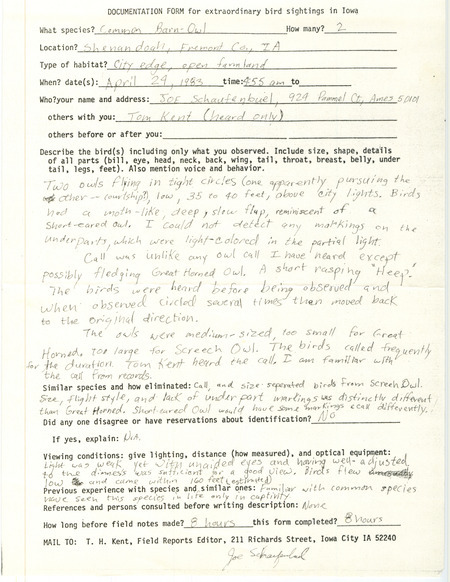 DOCUMENTATION FORM for extraordinary bird sightings in Iowa
What species? Common Barn-Owl How many? 2
Location? Shenandoah, Fremont Co., IA
Type of habitat? City edge, open farmland
When? date(s): April 29, 1983 time: 4:55 am to
Who? your name and address: Joe Schaufenbuel, 929 Pammel Ct, Ames 50101
others with you: Tom Kent (heard only)
others before or after you:
Describe the bird(s) including only what you observed. Include size, shape, details
of all parts (bill, eye, head, neck, back, wing, tail, throat, breast, belly, under
tail, legs, feet). Also mention voice and behavior.
Two owls flying in tight circles (one apparently pursuing the
other - courtship?), low, 35 to 40 feet, above city lights. Birds
had a moth-like, deep, slow flap, reminiscent of a
Short-eared Owl. I could not detect any markings on the
underparts, which were light-colored in the partial light.
Call was unlike any owl call I have heard except
possibly fledging Great Horned Owl. A short rasping "Heep".
The birds were heard before being observed and
when observed circled several times then moved back
to the original direction.
The owls were medium-sized, too small for Great
Horned, too large for Screech Owl. The birds called frequently
for the duration. Tom Kent heard the call. I am familiar with
the call from records.
Similar species and how eliminated: Call, and size separated birds from Screech Owl.
Size, flight style, and lack of under part markings was distinctly different
than Great Horned. Short-eared Owl would have some markings call differently.
Did any one disagree or have reservations about identification? No
If yes, explain: N.A.
Viewing conditions: give lighting, distance (how measured), and optical equipment:
Light was weak yet with unaided eyes and having well-adjusted
to the dimness was sufficient for a good view. Birds flew
low and came within 160 feet (estimated)
Previous experience with species and similar ones: Familiar with common species
have seen this species in life only in captivity
References and persons consulted before writing description: None
How long before field notes made? 8 hours this form completed? 8 hours
MAIL TO: T. H. Kent, Field Reports Editor, 211 Richards Street, Iowa City IA 52240
Joe Schaufenbuel